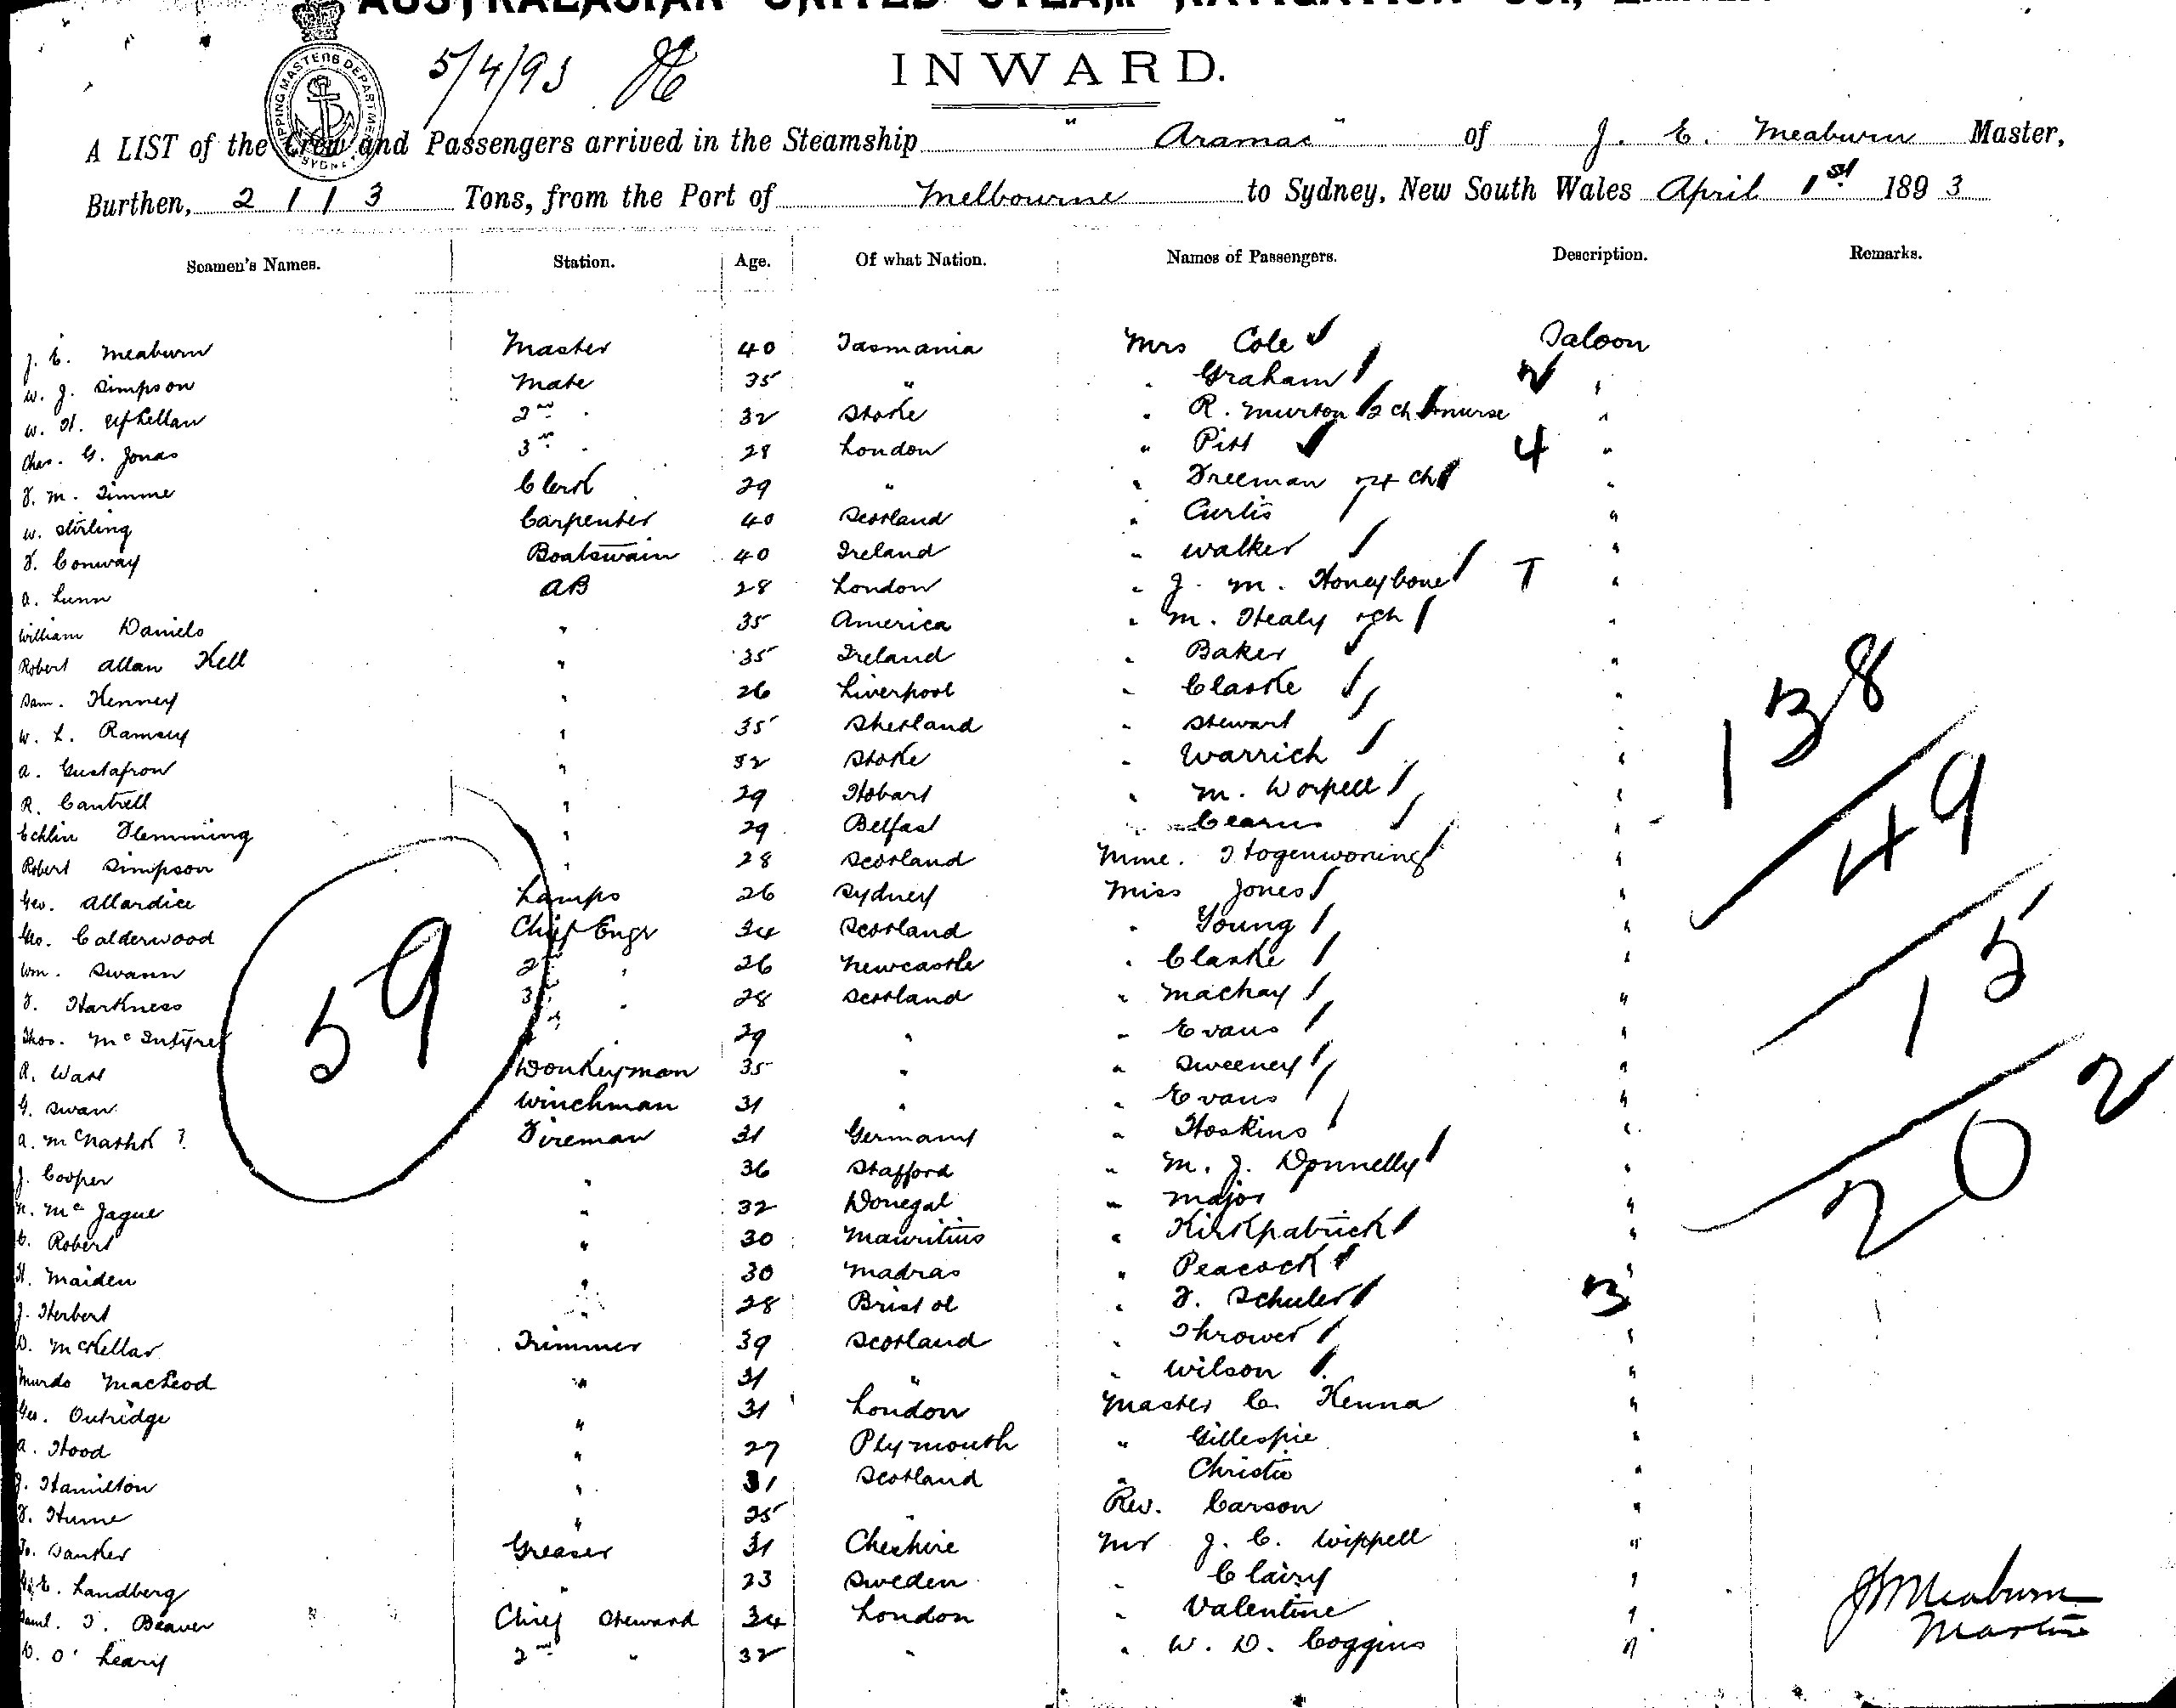 AUSTRALASIAN UNITED STEAM NAVIGATION CO., LIMITED
INWARD.
5/4/93
SHIPPING MASTERS DEPARTMENT SYDNEY
A LIST of the Crew and Passengers arrived in the Steamship "Aramac" of J. E. Meaburn Master,
Burthen, 2113 Tons, from the Port of Melbourne to Sydney, New South Wales April 1st 1893
Seamen's Names. Station. Age. Of what Nation. Names of Passengers. Description. Remarks.
J. E. Meaburn Master 40 Tasmania Mrs Cole Saloon
W. J. Simpson Mate 35 " " Graham 2 "
W. H. 2nd " 32 Stoke " R. Murton 2 ch & nurse "
Chas. G. Jonas 3rd " 28 London " Pitt 4 "
F. M. Timme Clerk 29 " " Freeman & 4 ch "
W. Stirling Carpenter 40 Scotland " Curtis "
F. Conway Boatswain 40 Ireland " Walker "
A. Lunn AB 28 London " J. M. Honeybone T "
William Daniels " 35 America " M. Healy & ch "
Robert Allan Kell " 35 Ireland " Baker "
Sam. Kenney " 26 Liverpool " Clarke "
W. L. Ramsey " 35 Shetland " Stewart "
A. Gustafson " 32 Stoke " Warrich "
R. Cantrell " 29 Hobart " M. Worpell "
Echlin Flemming " 29 Belfast " Cearns "
Robert Simpson " 28 Scotland Mme. Hogenwoning "
Geo. Allardice Lamps 26 Sydney Miss Jones "
Geo. Calderwood Chief Engr 34 Scotland " Young "
Wm. Swann 2nd " 26 Newcastle " Clarke "
F. Harkness 3rd " 28 Scotland " Mackay "
Thos. McIntyre 29 " " Evans "
A. Watt Donkeyman 35 " " Sweeney "
G. Swan Winchman 31 " " Evans "
A. ? Fireman 31 Germany " Hoskins "
J. Cooper " 36 Stafford " M. J. Donnelly "
N. McJague " 32 Donegal " Major "
C. Robert " 30 Mauritius " Kirkpatrick "
H. Maiden " 30 Madras " Peacock "
J. Herbert " 28 Bristol " F. Schuler 3 "
D. McKellar Trimmer 39 Scotland " Thrower "
Murdo MacLeod " 31 " " Wilson "
Geo. Outridge " 31 London Master C. Kenna "
A. Hood " 27 Plymouth " Gillespie "
J. Hamilton " 31 Scotland " Christie "
F. Hume " 25 " Rev. Carson "
Danker Greaser 31 Cheshire Mr J. C. Wippell "
E. Landberg " 23 Sweden " Clairy "
Saml. T. Beaver Chief Steward 34 London " Valentine "
D. O'Leary 2nd " 32 " " W. D. Coggins "
59
138
49
15
202
J E Meaburn
Master